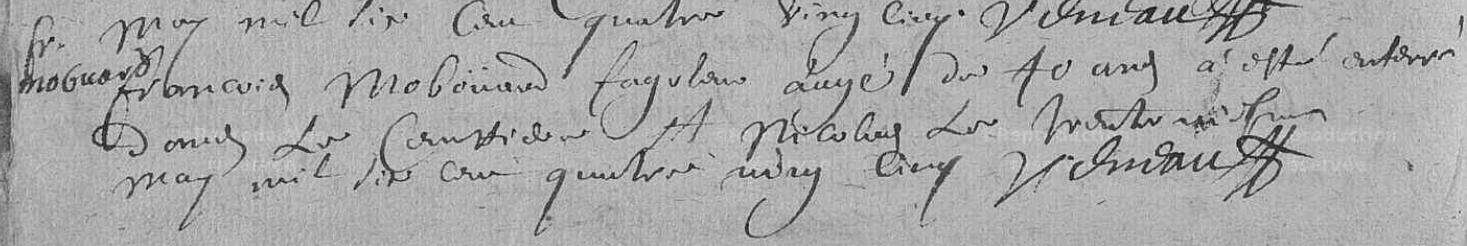 May mil six cen quatre ving cinq. Videau
fr.
mobouard
francois Mobouard fagoteur aagé de 40 ans a esté enterré
dans Le Cemittiere St Nicolas Le trente
may mil six cen quatre ving cinq Videau